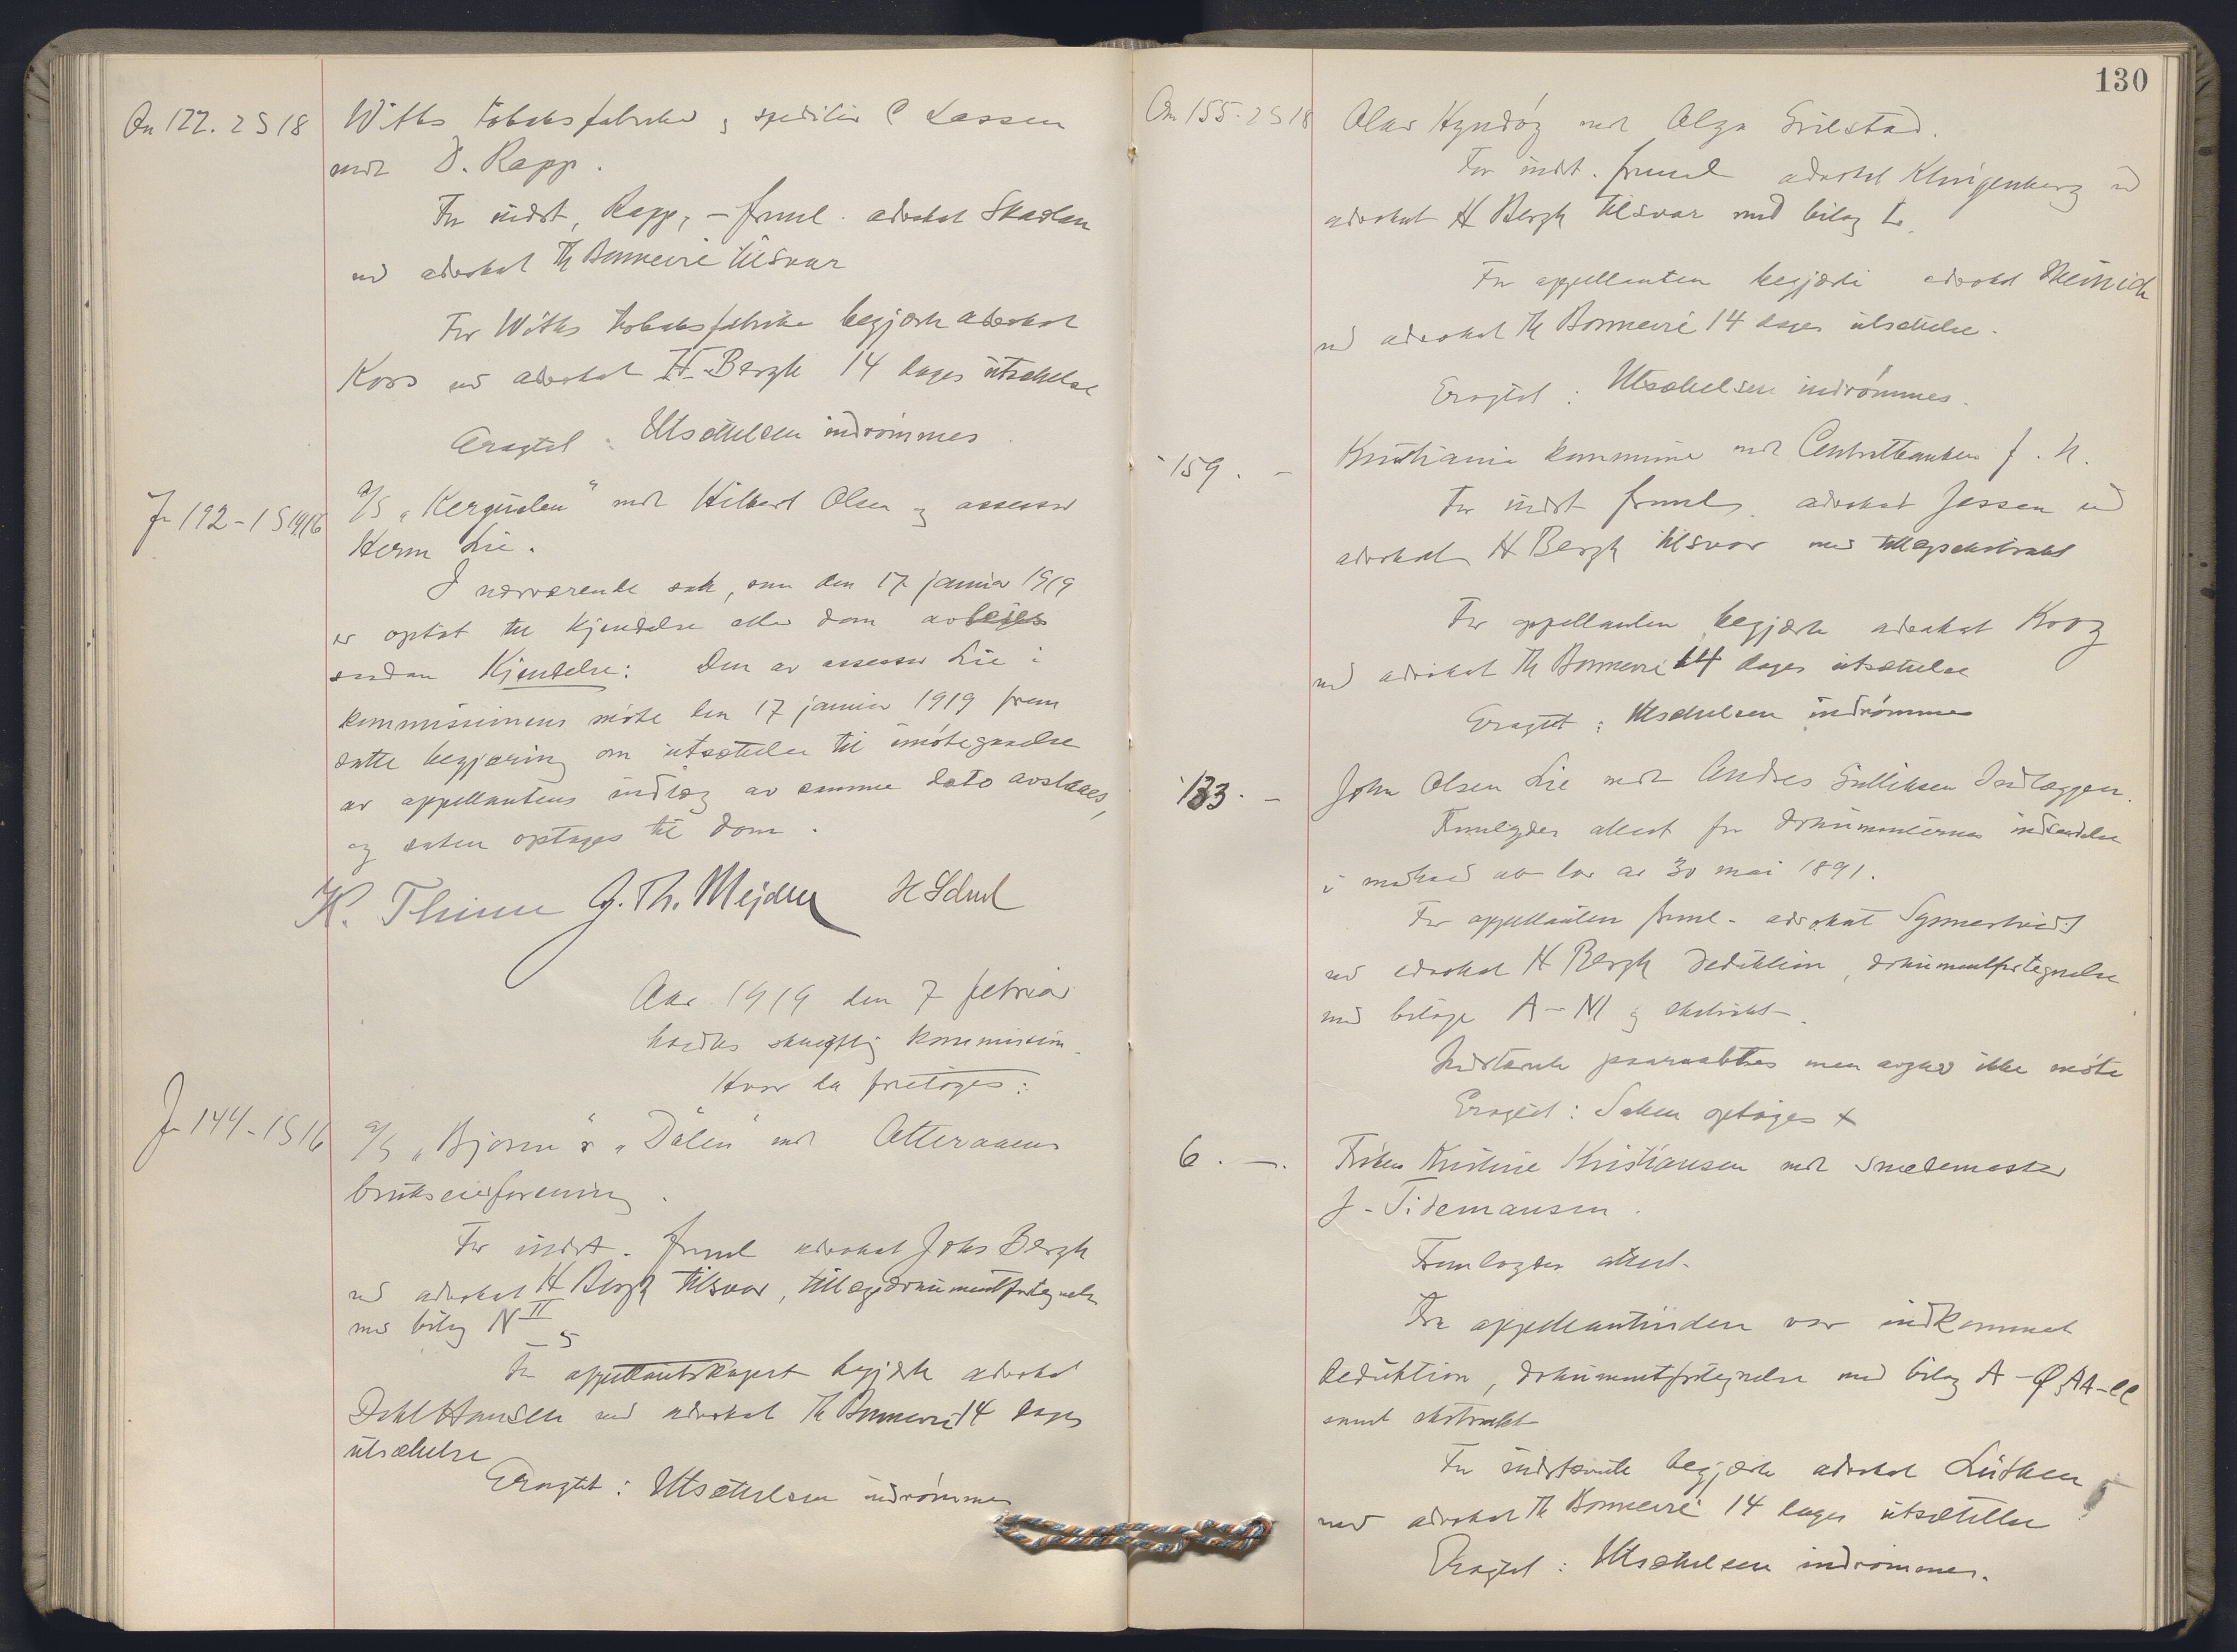 An 122. 2 S 18
Withs tobaksfabrikker og speditør C Lassen
mot D. Rapp.
For indst, Rapp, – freml. advokat Skavlan
ved advokat Th Bonnevie tilsvar
For Withs tobaksfabrikker begjærte advokat
Koss ved advokat H. Bergh 14 dages utsættelse
Eragtet: Utsættelsen indrømmes.
Jr 192 – 1 S 1916
A/S "Kerguelen" mot Hilbert Olsen og assessor
Herm Lie.
I nærværende sak, som den 17. januar 1919
er optat til kjendelse eller dom avsiges
saadan Kjendelse: Den av assessor Lie i
kommissionens møte den 17 januar 1919 frem
satte begjæring om utsættelse til imøtegaaelse
av appellantens indlæg av samme dato avslaaes,
og saken optages til dom.
K. Thinn G. Th. Mejdell
Aar 1919 den 7 februar
holdtes skriftlig kommission.
Hvor da foretoges:
Jr 144 – 1 S 16
A/S "Bjørn" & "Dalen" mot Otteraaens
brukseierforening.
For indst. freml advokat Johs Bergh
ved advokat H Bergh tilsvar, tillægsdokumentfortegnelse
med bilag N II – 5
For appellantskapet begjærte advokat
Dahl Hansen ved advokat Th Bonnevie 14 dages
utsættelse
Eragtet: Utsættelsen indrømmes
130
An 155. 2 S 18
Olav mot Olga
For indst. freml advokat Klingenberg ved
advokat H Bergh tilsvar med bilag L.
For appellanten begjærte advokat Meinich
ved advokat Th Bonnevie 14 dages utsættelse.
Eragtet: Utsættelsen indrømmes.
" 159. –
Kristiania kommune mot Centralbanken f. N.
For indst freml. advokat Jessen ved
advokat H Bergh tilsvar med tillægsekstrakt
For appellanten begjærte advokat
ved advokat Th Bonnevie 14 dages utsættelse
Eragtet: Utsættelsen indrømmes
" 133. –
John Olsen Lie mot Andres Gulliksen
Fremlagdes attest for dokumenternes indsendelse
i medhold av lov av 30 mai 1891.
For appellanten freml. advokat
ved advokat H Bergh deduktion, dokumentfortegnelse
med bilage A–N og ekstrakt.
Indstevnte paaraabtes men avgav ikke møte
Eragtet: Saken optages
6. –.
Frøken Kristine Kristiansen mot smedemester
J. Tidemansen.
Fremlagdes attest.
Fra appellantinden var indkommet
deduktion, dokumentfortegnelse med bilag A–Ø, AA–CC
samt ekstrakt
For indstevnte begjærte advokat Lütken
ved advokat Th Bonnevie 14 dages utsættelse
Eragtet: Utsættelsen indrømmes.